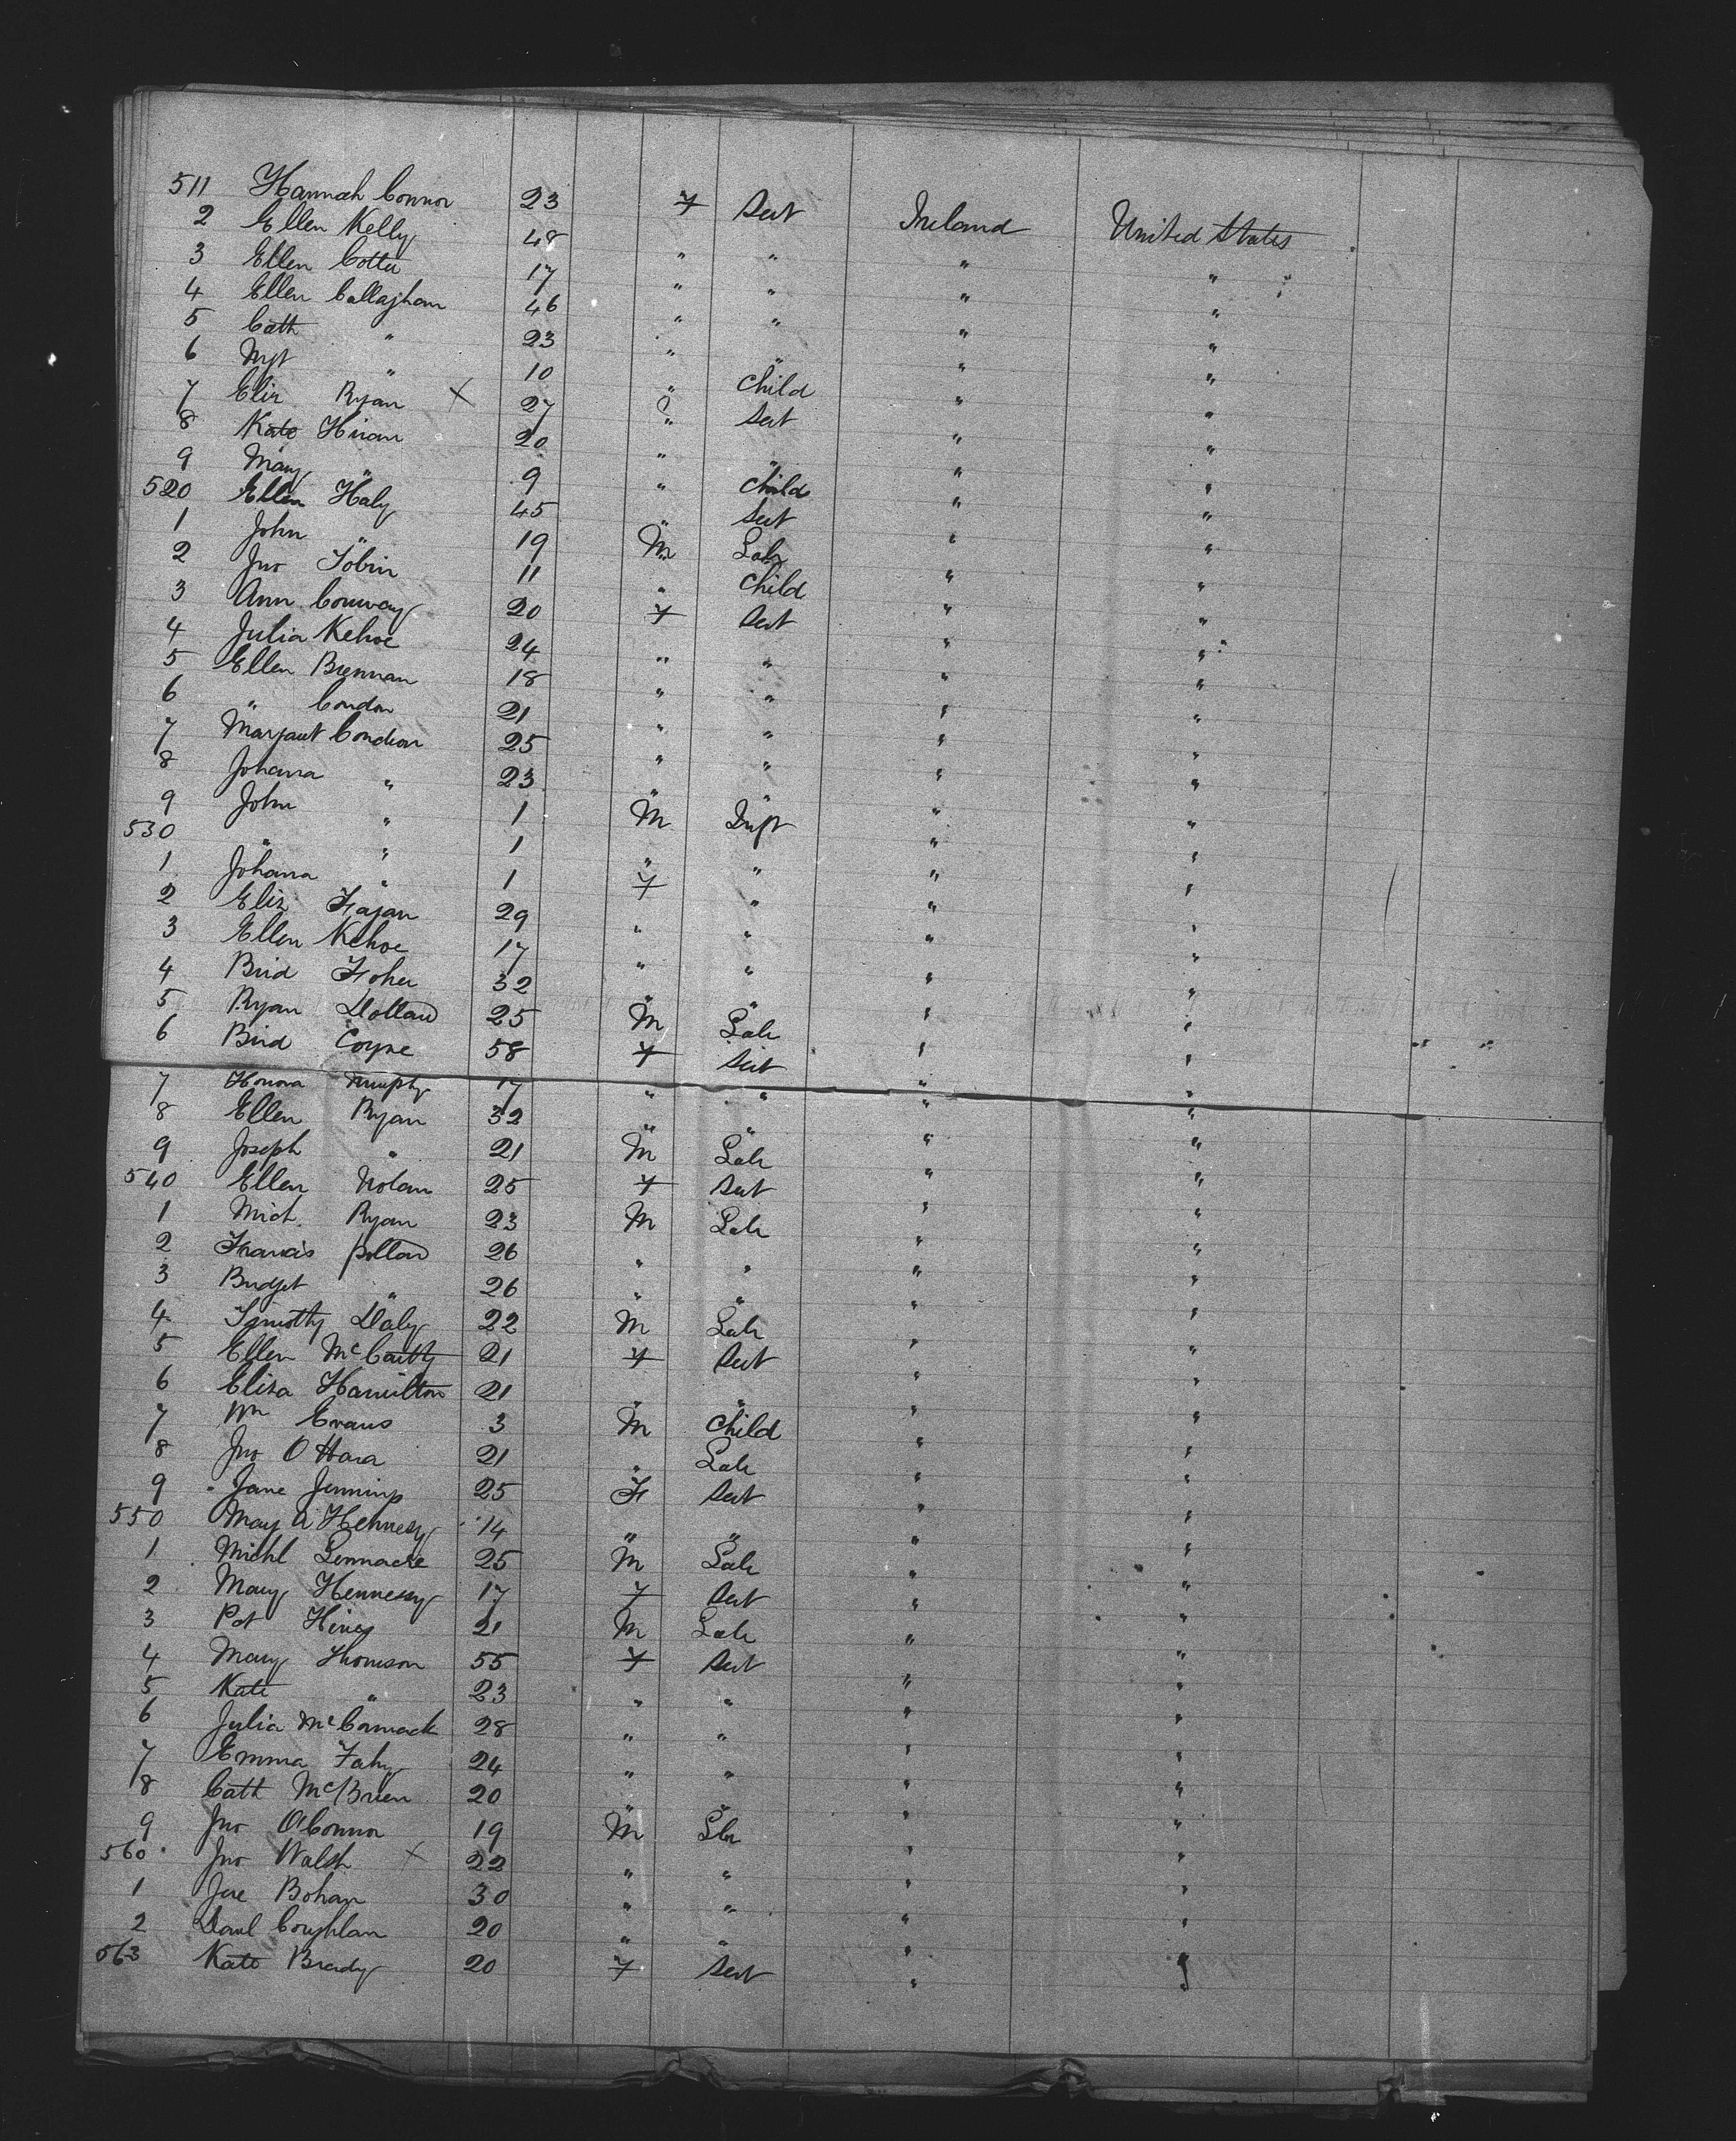 511 Hannah Connor 23 F Sert Ireland United States
2 Ellen Kelly 48 " " " "
3 Ellen Cotter 17 " " " "
4 Ellen Callaghan 46 " " " "
5 Cath " 23 " " " "
6 Mgt " 10 " Child " "
7 Eliz Ryan X 27 " Sert " "
8 Kate 20 " " " "
9 Mary " 9 " Child " "
520 Ellen Haly 45 " Sert " "
1 John " 19 M Lab " "
2 Jno Tobin 11 " Child " "
3 Ann Conway 20 F Sert " "
4 Julia Kehoe 24 " " " "
5 Ellen Brennan 18 " " " "
6 " Condon 21 " " " "
7 Margaret Condon 25 " " " "
8 Johana " 23 " " " "
9 John " 1 M Inft " "
530 " " 1 " " " "
1 Johana " 1 F " " "
2 Eliz Fagan 29 " " " "
3 Ellen Kehoe 17 " " " "
4 Brid 32 " " " "
5 Ryan 25 M Lab " "
6 Brid Coyne 58 F Sert " "
7 Honora Murphy 17 " " " "
8 Ellen Ryan 32 " " " "
9 Joseph " 21 M Lab " "
540 Ellen Nolan 25 F Sert " "
1 Mich. Ryan 23 M Lab " "
2 Francis 26 " " " "
3 Bridget " 26 " " " "
4 Timothy Daly 22 M Lab " "
5 Ellen McCarthy 21 F Sert " "
6 Eliza Hamilton 21 " " " "
7 Wm Evans 3 M Child " "
8 Jno O Hara 21 " Lab " "
9 Jane Jennings 25 F Sert " "
550 May A Hennesy 14 " " " "
1 Michl 25 M Lab " "
2 Mary Hennessy 17 F Sert " "
3 Pat Hines 21 M Lab " "
4 Mary Thomson 55 F Sert " "
5 Kate " 23 " " " "
6 Julia McCormack 28 " " " "
7 Emma Fahy 24 " " " "
8 Cath McBrien 20 " " " "
9 Jno OConnor 19 M Lbr " "
560 Jno Walsh X 22 " " " "
1 Jae Bohan 30 " " " "
2 Danl Coughlan 20 " " " "
563 Kate Brady 20 F Sert " "